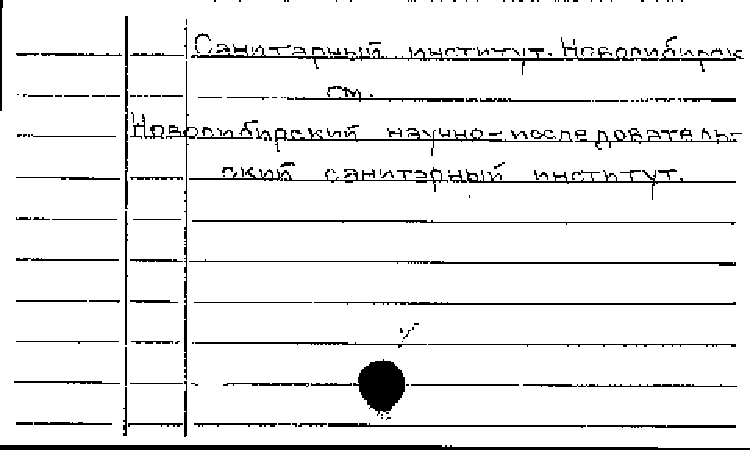 Санитарный институт. Новосибирск
см.
Новосибирский научно-исследователь-
ский санитарный институт.